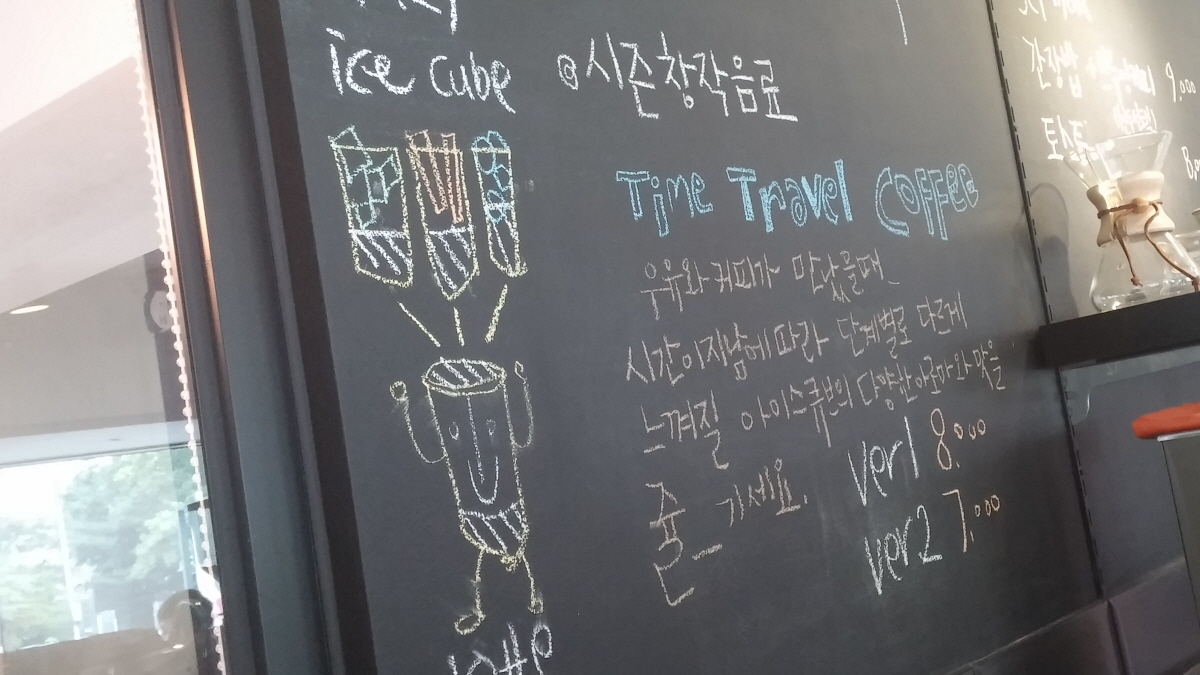 ice cube
◎시즌창작음료
Time Travel COFFEE
우유와 커피가 만났을때
시간이지남에 따라 단계별로 다르게
느껴질 아이스큐브의 다양한 아로마와 맛을
즐기세요.
ver1 8.000
ver2 7.000
간장밥
9.000
토스트